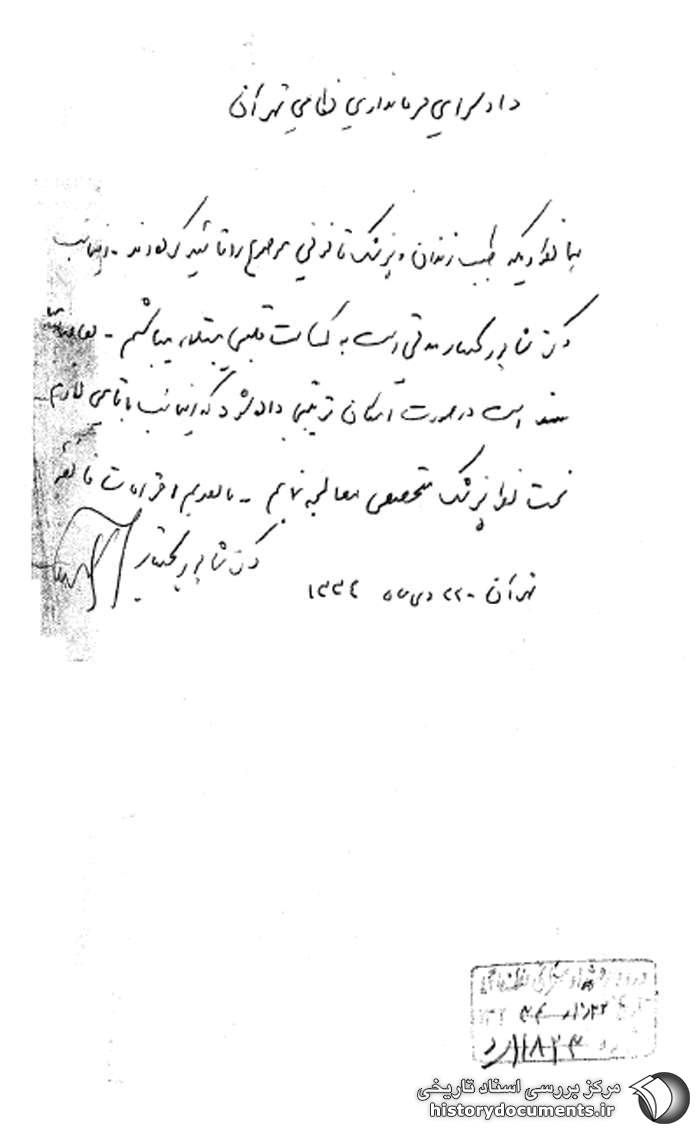 دادسرای فرمانداری نظامی تهران
همانطوریکه طبیب زندان و پزشک قانونی مراجع را تأیید کرده‌اند - اینجانب
دکتر شاپور بختیار مدتی است به کسالت قلبی مبتلا میباشم -
است در صورت امکان ترتیبی داده شود که اینجانب بتوانم
تحت نظر پزشک متخصص معالجه نمایم - با تقدیم احترامات فائقه
دکتر شاپور بختیار
تهران - ۲۲ دی ماه ۱۳۳۴
مرکز بررسی اسناد تاریخی
historydocuments.ir